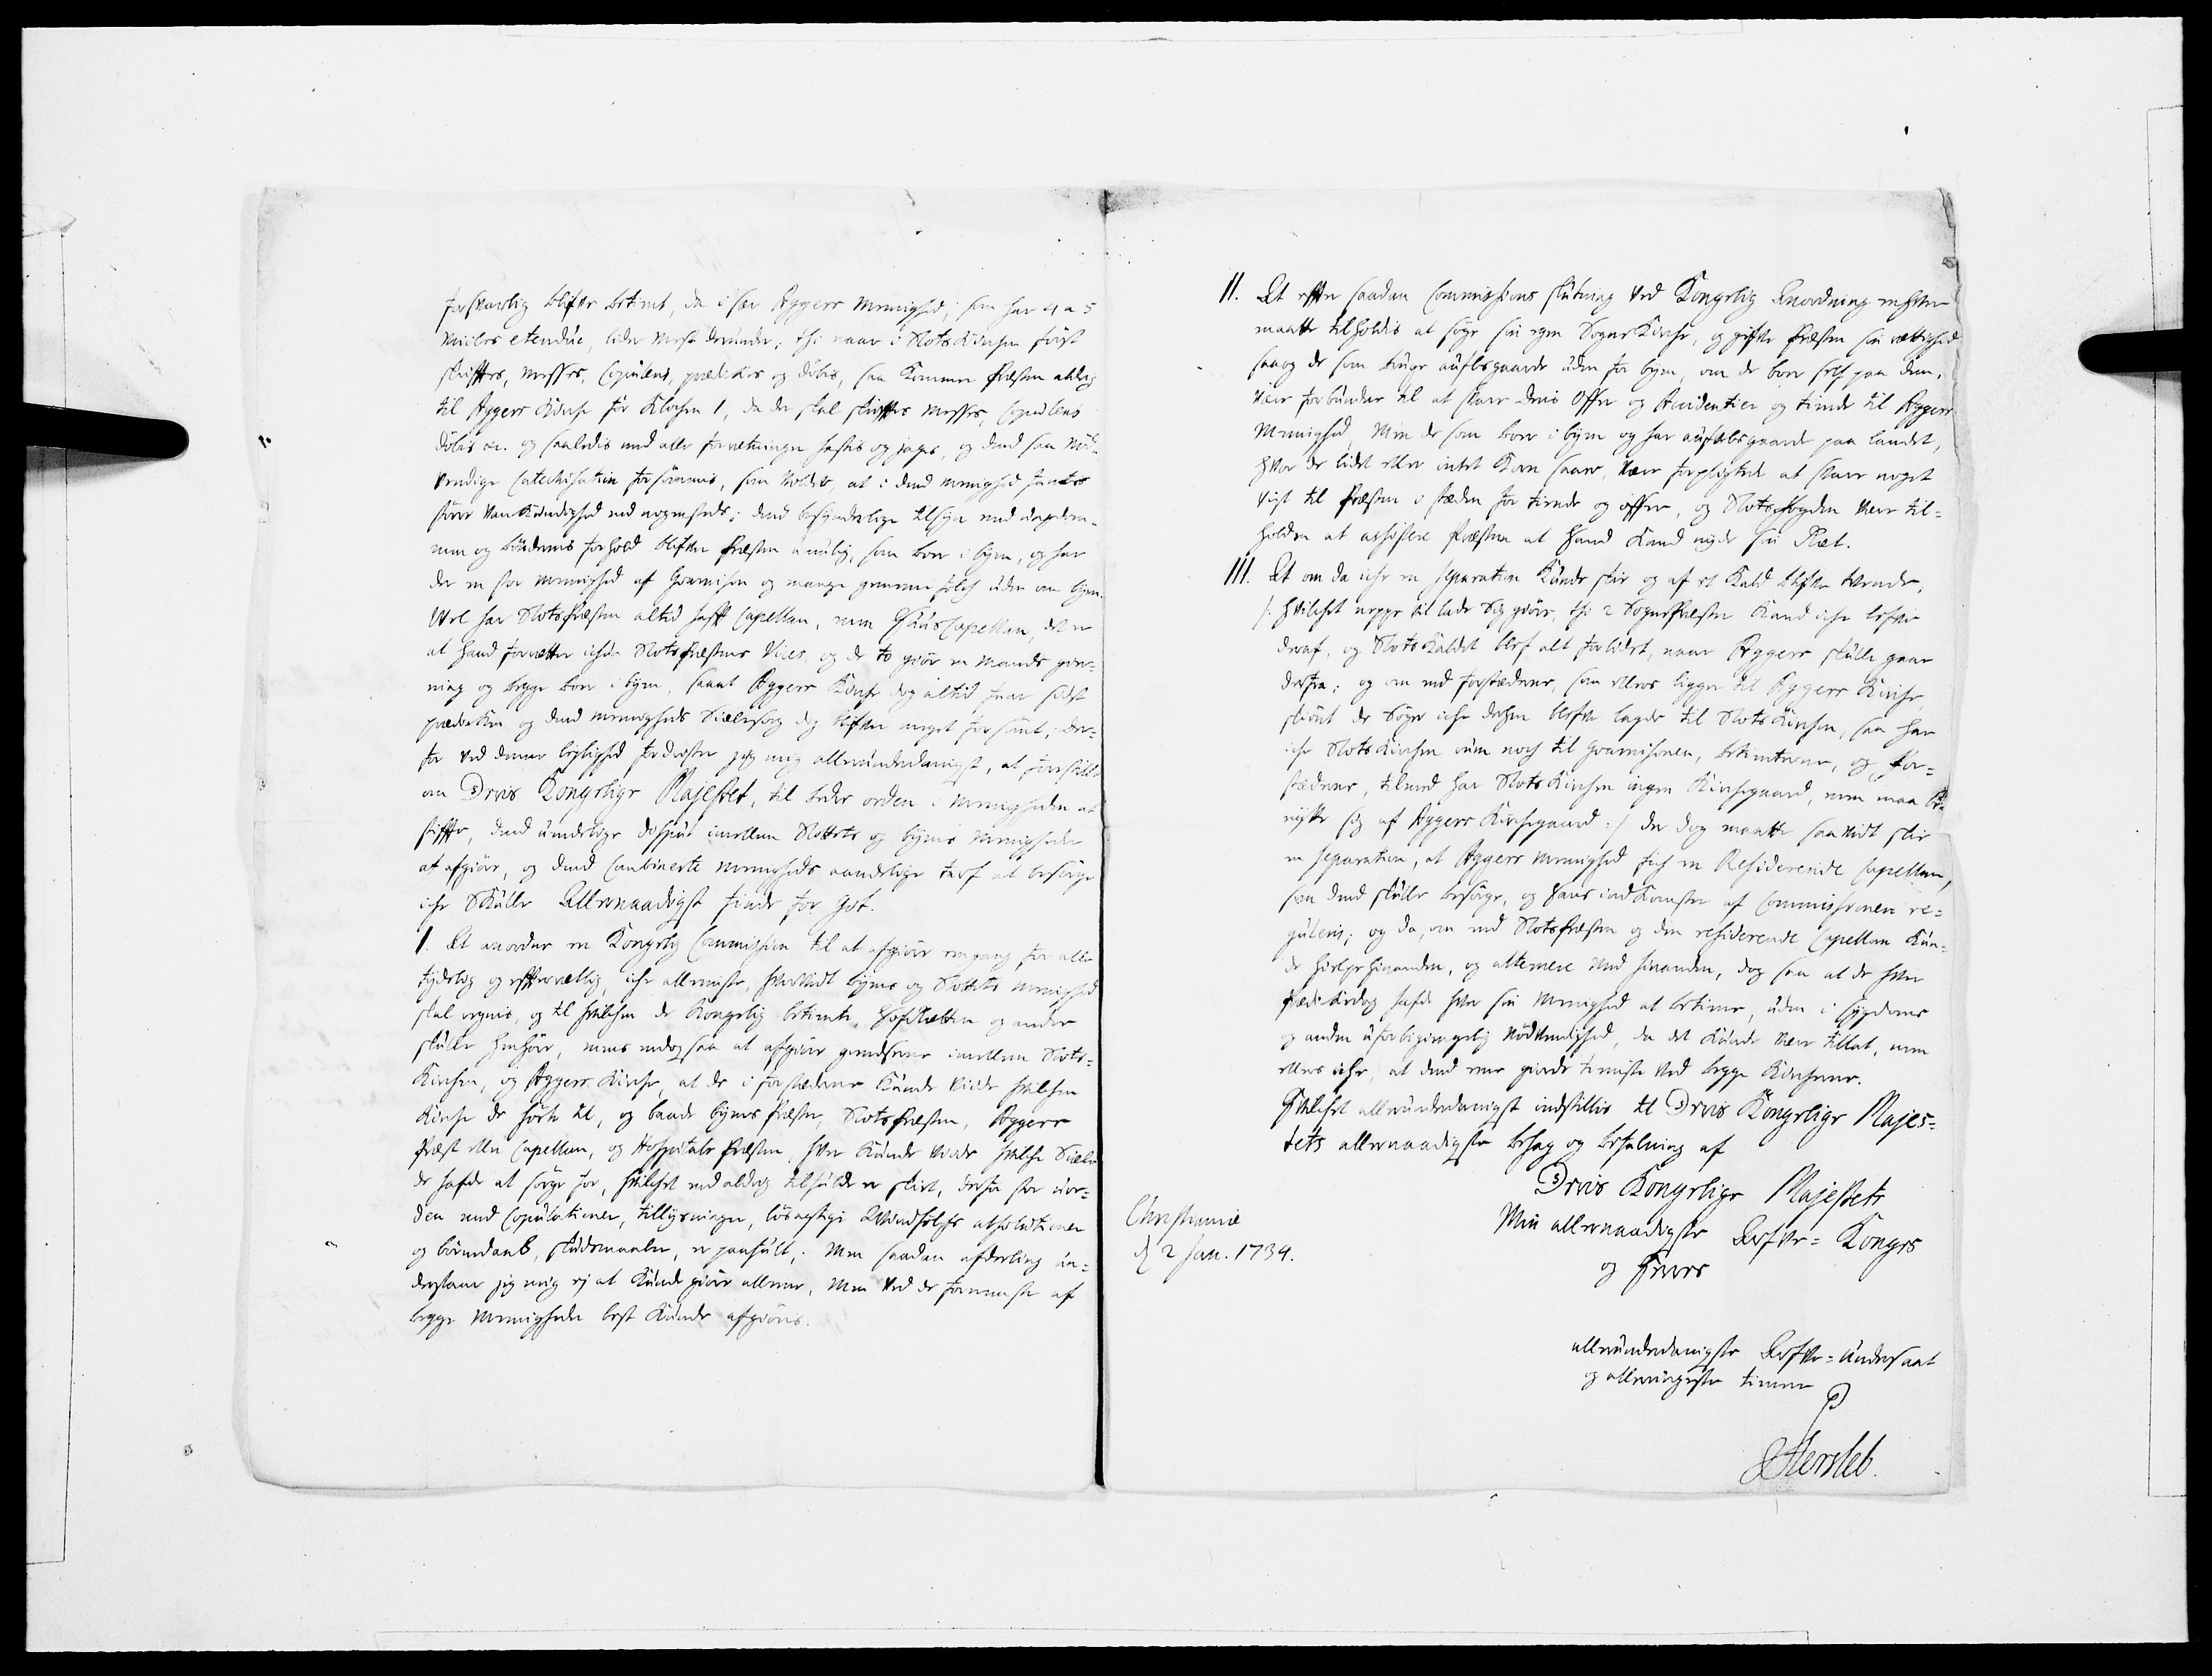 forsvarlig blifver betient, da i sær Aggers Meenighed, som har 4 a 5
Miiles etendüe, lider mest derunder; thi naar i Slots Kirchen først
skrifftes, messes, Copuleris, prædikes og döbis, saa kommer Præsten aldrig
til Aggers Kirche för Klochen 1, da der skal skrifftes, messes, Copuleris
döbis etc. og saaledis med alle forretninger hastis og jages, og dend saa nöd-
vendige Catechisation forsömmis, som volder, at i dend menighed findes
större Vankundighed end nogensteds; dend besynderlige tilsyn med ungdom-
men og böndernis forhold blifver Præsten umulig, som boer i byen, og har
der en stor menighed af Guarnison og mange gemeene folch uden om byen.
Vel har SlotsPræsten altid hafft Capellan, men HuusCapellan, det er
at hand forretter ichun SlotsPræstens Vices, og de to giör en Mands gier-
ning og begge boer i byen, saa at Aggers Kirche dog altid faar sildst
prædiken og dend menigheds Siælesorg dog blifver meget forsömt; der-
for ved denne leylighed fordrister jeg mig allerunderdanigst, at forestille
om Deris Kongelige Majestet, til bedre orden i Menigheden at
stiffte, dend uendelige disput imellem Slottets og byens Menigheder
at afgiöre, og dend Combinerte menigheds aandelige tarf at besörge
iche skulle Allernaadigst finde for Got.
1. At anordne en Kongelig Commission til at afgiöre engang for alle
tydelig og effterrettlig, iche alleeniste, hvorvidt byens og Slottets menighed
skal regnis, og til hvilchen de Kongelig betiente, HofRetten og andre
skulle henhöre, mens endog saa at afgiöre grendserne imellem Slots-
Kirchen, og Aggers Kirche, at de i forstæderne kunde viide hvilchen
Kirche de hörte til, og baade byens Præster, SlotsPræsten, Aggers
Præst eller Capellan, og Hospitals Præsten, hver kunde viide hvilche Siæle
de hafde at sörge for, hvilchet end aldrig tilfulde er skeet, derfra stor uor-
den med Copulationer, tillysninger, lösagtige Qvindfolches absolutioner
og barnedaab, skudsmaaler, er paafult; Men saadan afdeeling un-
derstaar jeg mig ej at kunde giöre alleene, Men ved de fornemste af
begge Menigheder best kunde afgiöris.
11. At effter saadan Commissions slutning ved Kongelig Anordning enhver
maatte tilholdis at söge sin egen SogneKirche, og gifve Præsten sin rettighed
saa og de som bruge auflsgaarde uden for byen, om de boer self paa dem,
være forbunden til at svare deris Offer og Accidentier og tiende til Aggers
Menighed, Men de som boer i byen og har aufelsgaard paa landet,
hvor de lidet eller intet Korn saaer, være forpligtede at svare noget
vist til Præsten i stæden for tiende og offer, og SlotsFogden være til-
holden at assistere Præsten at hand kand nyde sin Ræt.
111. At om da iche en separation kunde skee og af et Kald blifve tvende,
/: hvilchet neppe vil lade sig giöre, thi 2 SognePræster kand iche lefve
deraf, og SlotsKaldet blef alt for lidet, naar Aggers skulle gaae
derfra; og om end forstæderne, som ellers ligger til Aggers Kirche,
skiönt de Söger iche derhen blefve lagde til SlotsKirchen, saa har
iche SlotsKirchen rum noch til Guarnisonen, betienterne, og for-
stæderne, tilmed har SlotsKirchen ingen Kirchegaard, men maa be-
nytte sig af Aggers Kirchegaard :/ der dog maatte saavidt skee
en separation, at Aggers menighed fich en Residerende Capellan,
som dend skulle besörge, og hans indKomster af Commissionen re-
guleris; og da, om end SlotsPræsten og den residerende Capellan kun-
de hielpe hinanden, og alternere med hinanden, dog saa at de hver
Prædikedag hafde hver sin Menighed at betiene, uden i Sygdoms
og anden uforbigiengelig Nödvendighed, da det kunde være tillat, men
ellers iche, at dend eene giorde tieniste ved begge Kircherne.
Hvilchet allerunderdanigst indstillis til Deris Kongelige Majes-
tets allernaadigste behag og befalning af
Deris Kongelige Majestets
Min allernaadigste Arfve-Konges
og Herres
Christianiæ
d 2 Jan. 1734.
allerunderdanigste Arfve-undersaat
og allerringeste tienere
P
Hersleb.